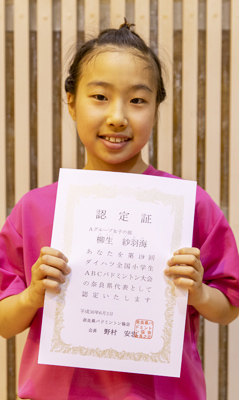 認定証
Aグループ女子の部
柳生 紗羽海
あなたを第19回
ダイハツ全国小学生
ABCバドミントン大会
の奈良県代表として
認定いたします
平成30年6月3日
奈良県バドミントン協会
会長 野村 安